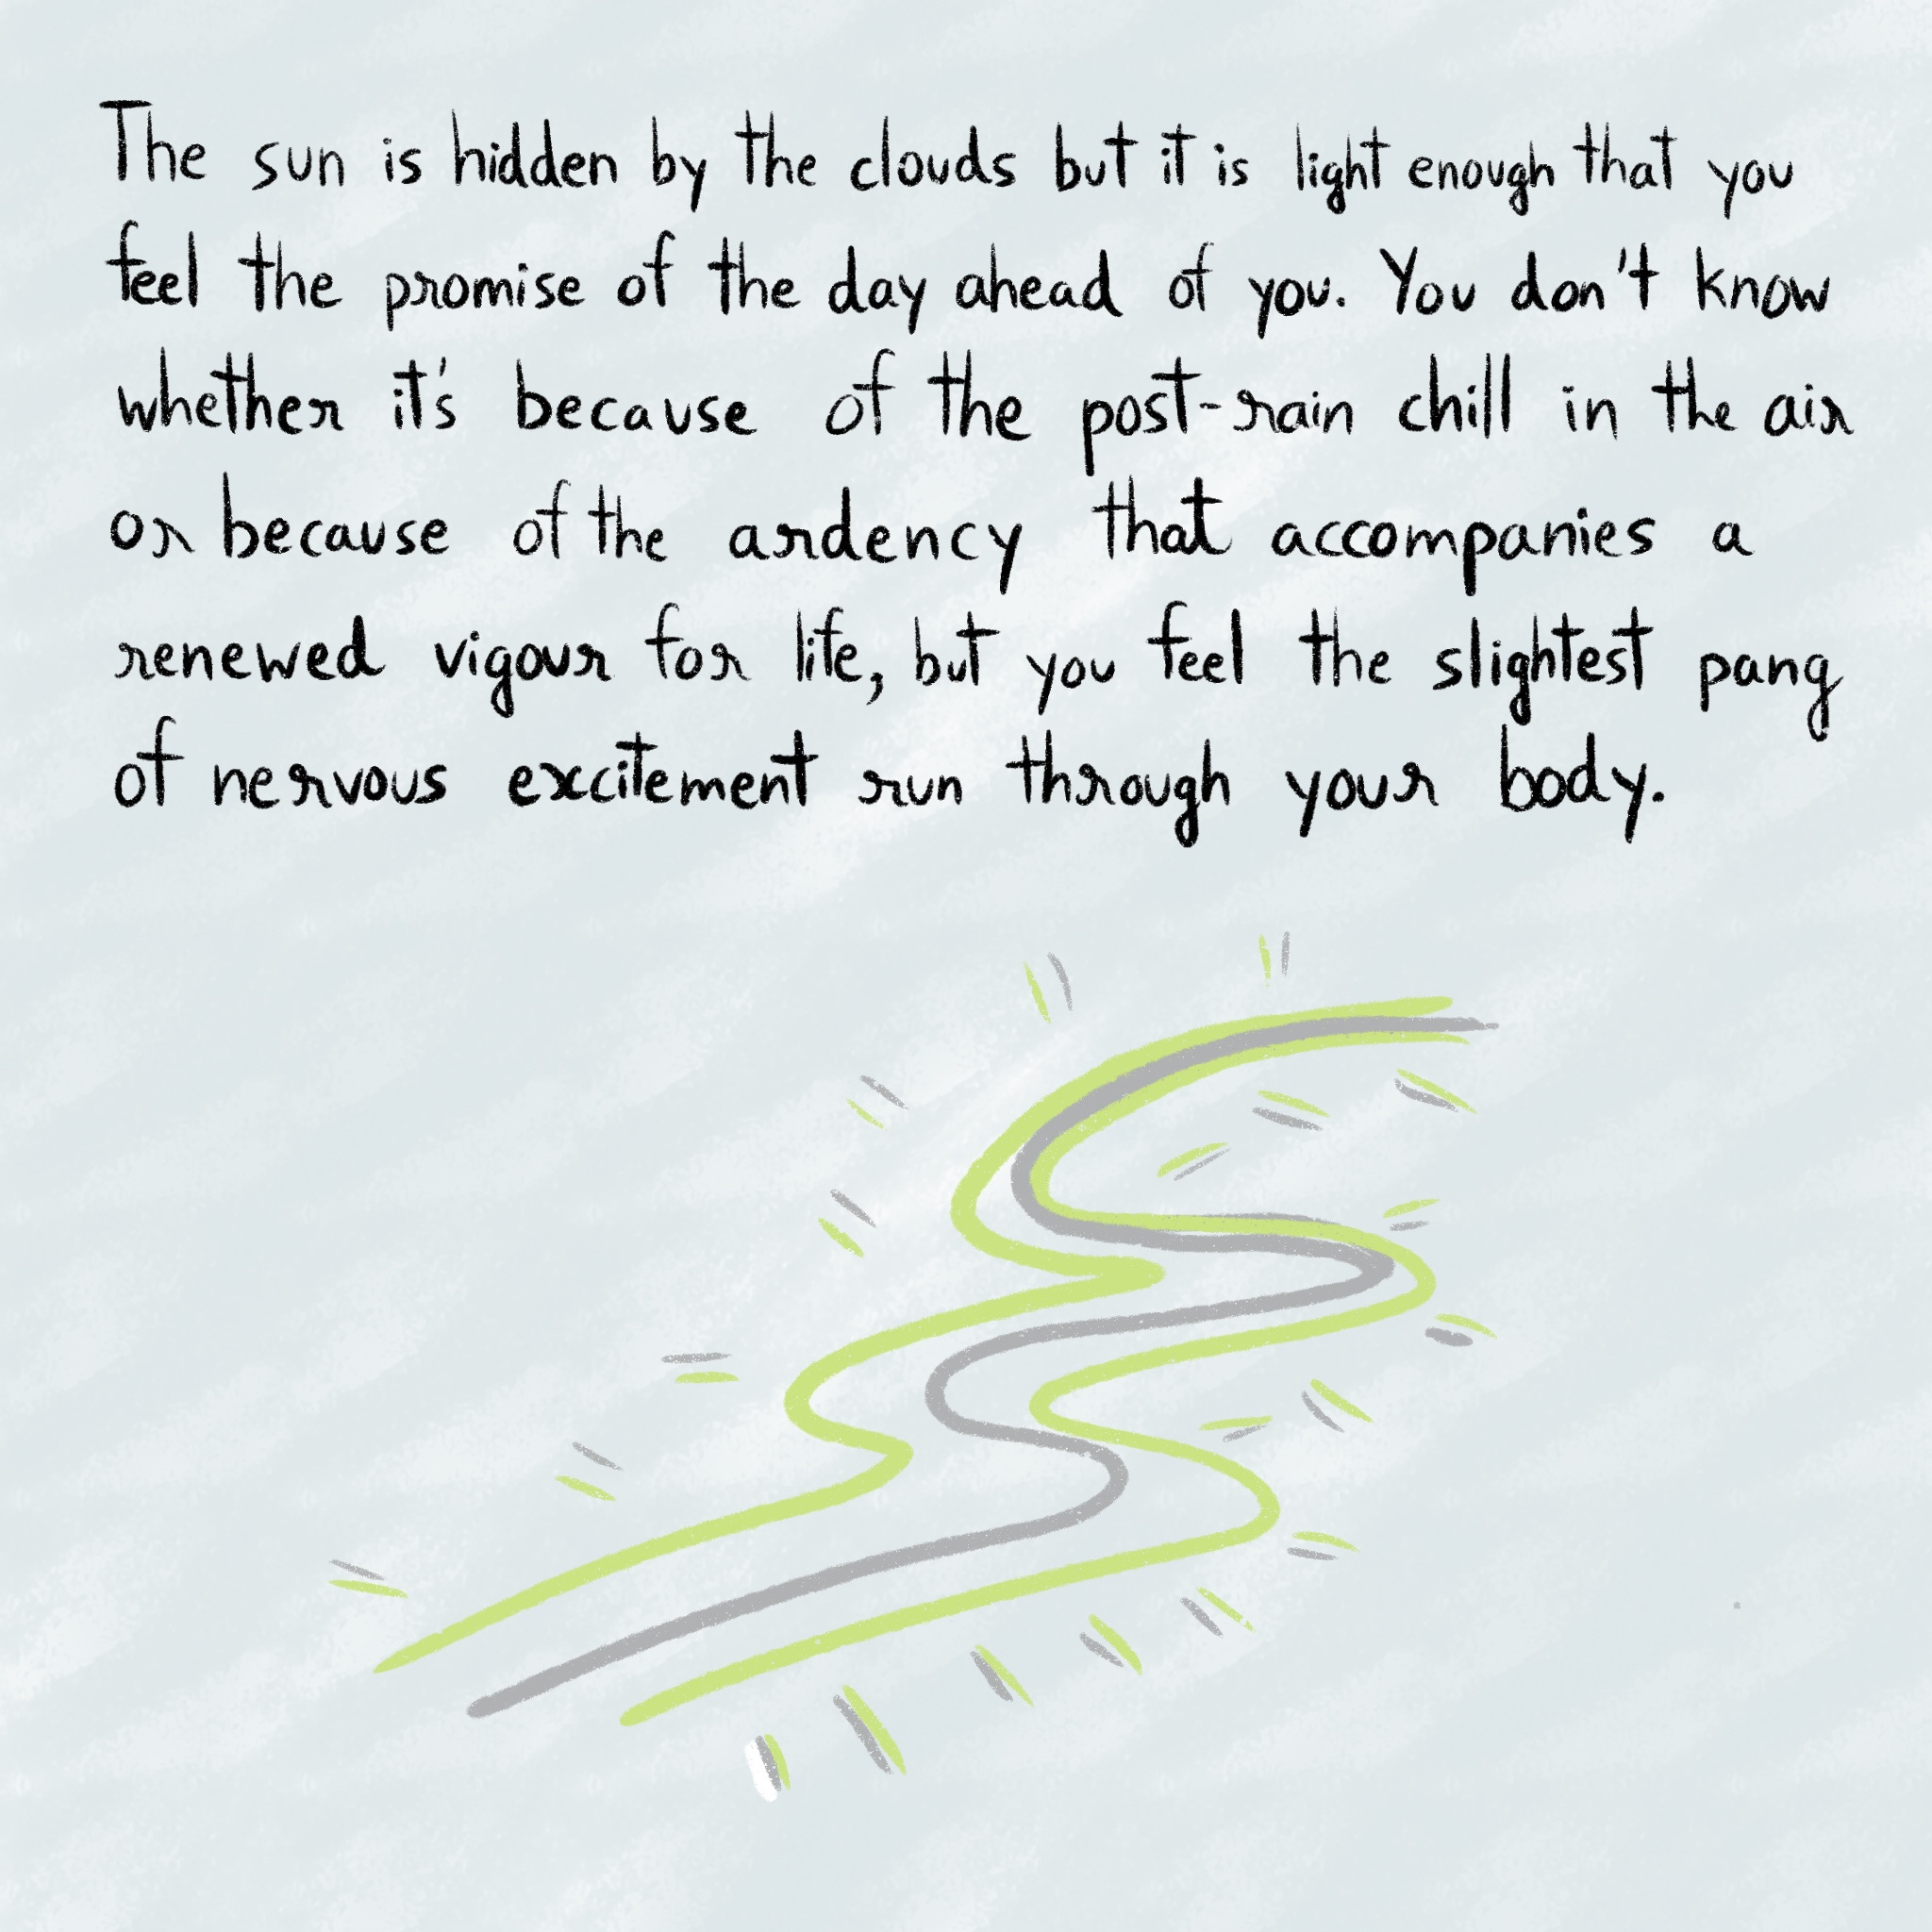 The sun is hidden by the clouds but it is light enough that you
feel the promise of the day ahead of you. You don't know
whether it's because of the post-rain chill in the air
or because of the ardency that accompanies a
renewed vigour for life, but you feel the slightest pang
of nervous excitement run through your body.